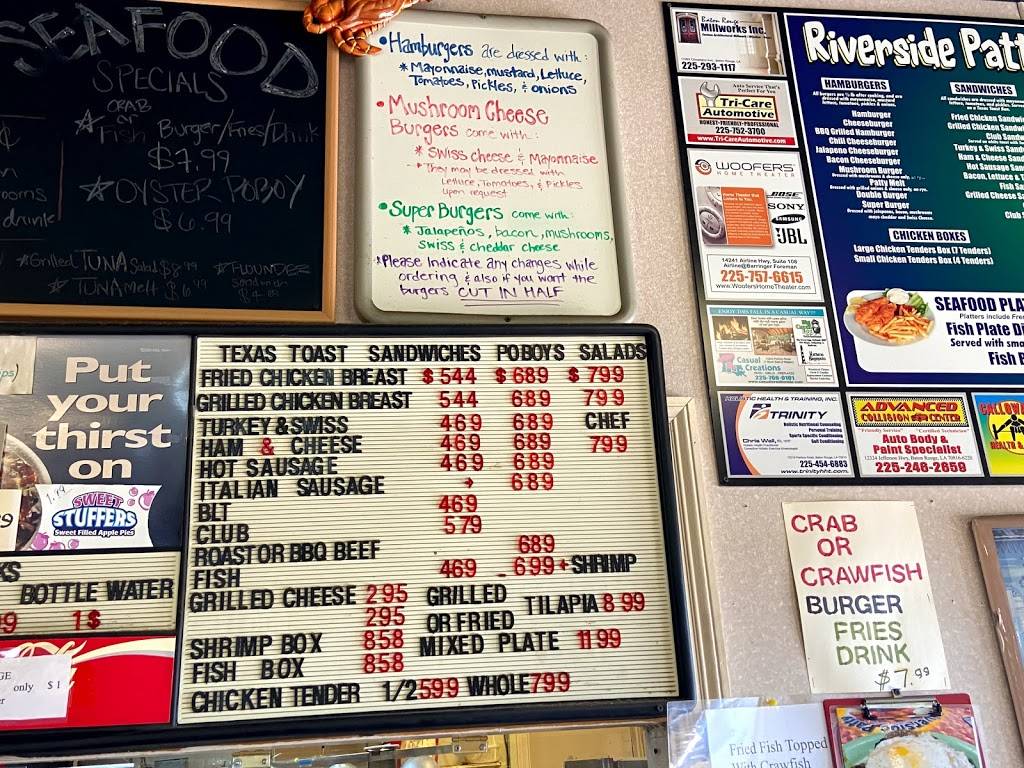 SEAFOOD
SPECIALS
CRAB
or
Fish Burger/Fries/Drink
$7.99
OYSTER POBOY
$6.99
drink
*Grilled TUNA Salad $8.99
*FLOUNDER
•Hamburgers are dressed with:
*Mayonnaise, mustard, Lettuce,
Tomatoes, Pickles, & onions
•Mushroom Cheese
Burgers come with:
*Swiss cheese & Mayonnaise
*They may be dressed with
Lettuce, Tomatoes, & Pickles
upon request
•Super Burgers come with:
*Jalapeños, bacon, mushrooms,
Swiss & cheddar cheese
*Please Indicate any changes while
ordering & also if you want the
burgers "CUT IN HALF"
Put
your
thirst
on
SWEET
STUFFERS
Sweet Filled Apple Pies
BOTTLE WATER
1$
only $1
TEXAS TOAST SANDWICHES POBOYS SALADS
FRIED CHICKEN BREAST $544 $689 $799
GRILLED CHICKEN BREAST 544 689 799
TURKEY & SWISS 469 689 CHEF
HAM & CHEESE 469 689 799
HOT SAUSAGE 469 689
ITALIAN SAUSAGE 689
BLT 469
CLUB 579
ROAST OR BBQ BEEF 689
FISH 469 699 + SHRIMP
GRILLED CHEESE 295 GRILLED TILAPIA 8 99
295 OR FRIED
SHRIMP BOX 858 MIXED PLATE 1199
FISH BOX 858
CHICKEN TENDER 1/2 599 WHOLE 799
Baton Rouge
Millworks Inc.
225-293-1117
Auto Service That's
Perfect For You
Tri-Care
Automotive
HONEST-FRIENDLY-PROFESSIONAL
225-752-3700
www.Tri-CareAutomotive.com
WOOFERS
HOME THEATER
BOSE
SONY
SAMSUNG
JBL
14241 Airline Hwy, Suite 108
Airline@Barringer Foreman
225-757-6615
www.WoofersHomeTheater.com
ENJOY THIS FALL IN A CASUAL WAY!!!
Casual
Creations
HOLISTIC HEALTH & TRAINING, INC.
TRINITY
Holistic Nutritional Counseling
Personal Training
Sports Specific Conditioning
Golf Conditioning
225-454-6883
www.trinityhht.com
ADVANCED
COLLISION CENTER
"Friendly Service" "Certified Technicians"
Auto Body &
Paint Specialist
225-248-2659
Riverside Patt
HAMBURGERS
Hamburger
Cheeseburger
BBQ Grilled Hamburger
Chili Cheeseburger
Jalapeno Cheeseburger
Bacon Cheeseburger
Mushroom Burger
Patty Melt
Double Burger
Super Burger
SANDWICHES
Fried Chicken Sandw
Grilled Chicken Sandw
Club Sandw
Turkey & Swiss Sandw
Ham & Cheese Sand
Hot Sausage San
Bacon, Lettuce & T
Fish Sa
Grilled Cheese S
CHICKEN BOXES
Large Chicken Tenders Box (7 Tenders)
Small Chicken Tenders Box (4 Tenders)
SEAFOOD PLA
Platters include Fre
Fish Plate Di
Served with sma
Fish B
CRAB
OR
CRAWFISH
BURGER
FRIES
DRINK
$7.99
Fried Fish Topped
With Crawfish